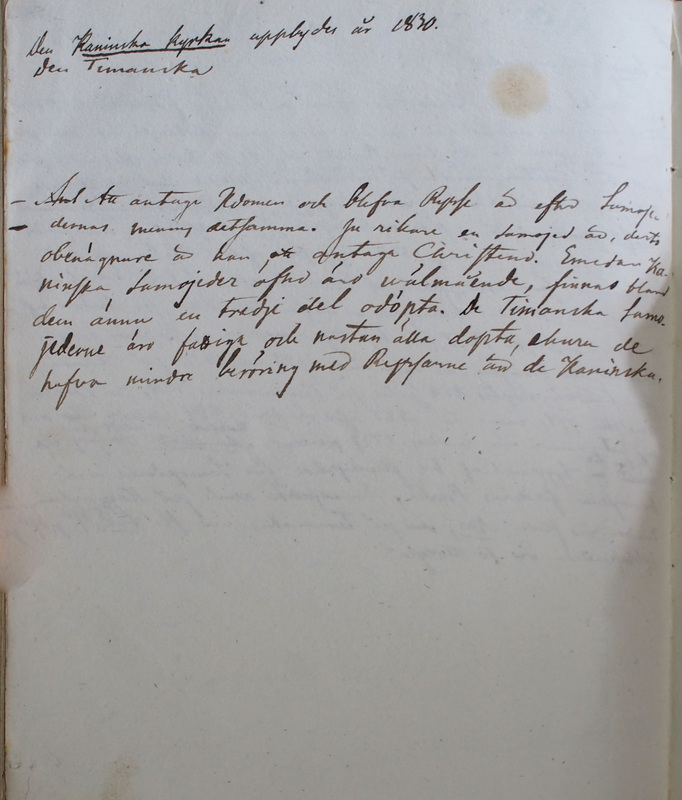 Den Kaninska kyrkan uppbydes år 1830.
Den Timanska
– Att antaga Normen och blifva Rysse är efter Samoje-
dernas mening detsamma. Ju rikare en Samojed är, desto
obenägnare är han att antaga Christend. Emedan Ka-
ninska Samojeder ofta äro wälmående, finnas bland
dem ännu en tredje del odöpta. De Timanska Samo-
jederne äro fattiga och nästan alla döpta, ehuru de
hafva mindre beröring med Ryssarne än de Kaninska.